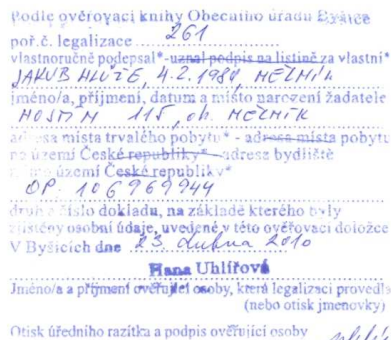 Podle ověřovací knihy Obecního úřadu Byšice
poř.č. legalizace 261
vlastnoručně podepsal*-uznal podpis na listině za vlastní*
JAKUB 4.2.1984, MĚLNÍK
jméno/a, příjmení, datum a místo narození žadatele
115, ok. MĚLNÍK
adresa místa trvalého pobytu* - adresa místa pobytu
na území České republiky* - adresa bydliště
území České republiky*
OP: 106969944
druh a číslo dokladu, na základě kterého byly
zjištěny osobní údaje, uvedené v této ověřovací doložce
V Byšicích dne 23. dubna 2010
Hana Uhlířová
Jméno/a a příjmení ověřující osoby, která legalizaci provedla
(nebo otisk jmenovky)
Otisk úředního razítka a podpis ověřující osoby